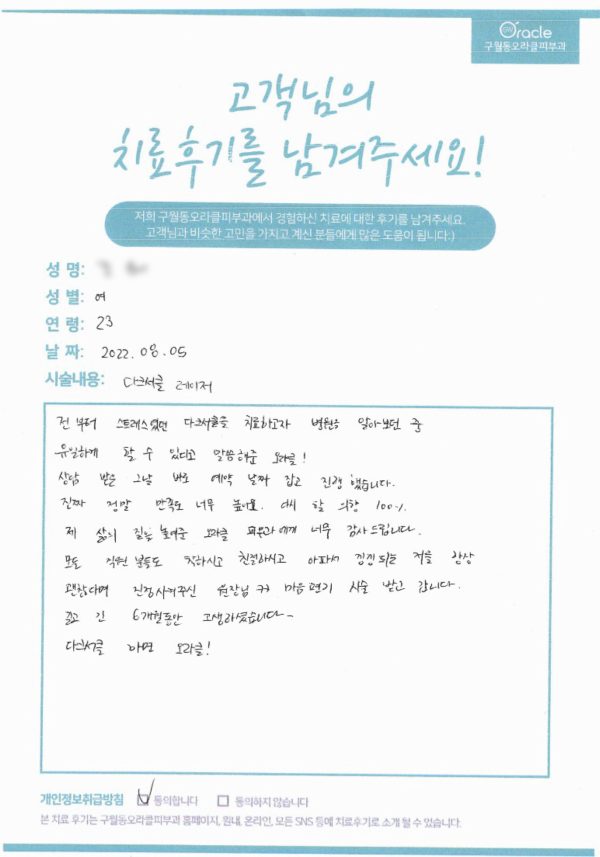 Oracle
구월동오라클피부과
고객님의
치료후기를 남겨주세요!
저희 구월동오라클피부과에서 경험하신 치료에 대한 후기를 남겨주세요.
고객님과 비슷한 고민을 가지고 계신 분들에게 많은 도움이 됩니다:)
성 명:
성 별: 여
연 령: 23
날 짜: 2022. 08. 05
시술내용: 다크서클 레이저
전부터 스트레스였던 다크서클을 치료하고자 병원을 알아보던 중
유일하게 할 수 있다고 말씀해준 오라클!
상담 받은 그날 바로 예약 날짜 잡고 진행했습니다.
진짜 정말 만족도 너무 높아요. 다시 할 의향 100%.
제 삶의 질을 높여준 오라클 피부과에게 너무 감사드립니다.
모든 직원 분들도 착하시고 친절하시고 아파서 낑낑되는 저를 항상
괜찮다며 진정시켜주신 원장님 ㅋㅋ 마음 편히 시술 받고 갑니다.
길고 긴 6개월동안 고생하셨습니다~
다크서클 하면 오라클!
개인정보취급방침 동의합니다 동의하지 않습니다
본 치료 후기는 구월동오라클피부과 홈페이지, 원내, 온라인, 모든 SNS 등에 치료후기로 소개 될 수 있습니다.